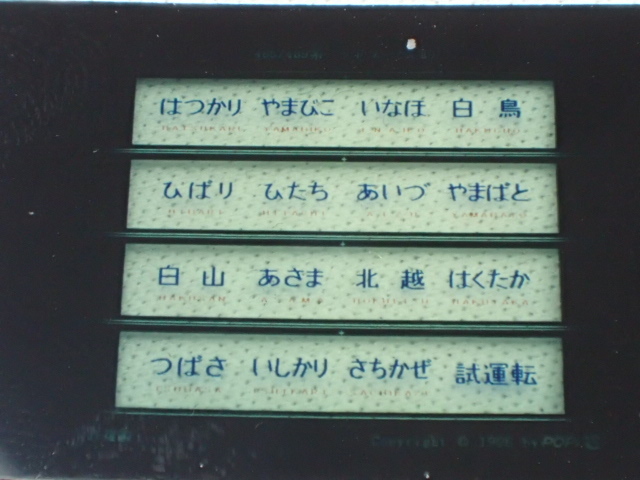 はつかり やまびこ いなほ 白鳥
HATSUKARI YAMABIKO INAHO HAKUCHO
ひばり ひたち あいづ やまばと
HIBARI HITACHI AIZU YAMABATO
白山 あさま 北越 はくたか
HAKUSAN ASAMA HOKUETSU HAKUTAKA
つばさ いしかり さちかぜ 試運転
TSUBASA ISHIKARI SACHIKAZE
Copyright © by